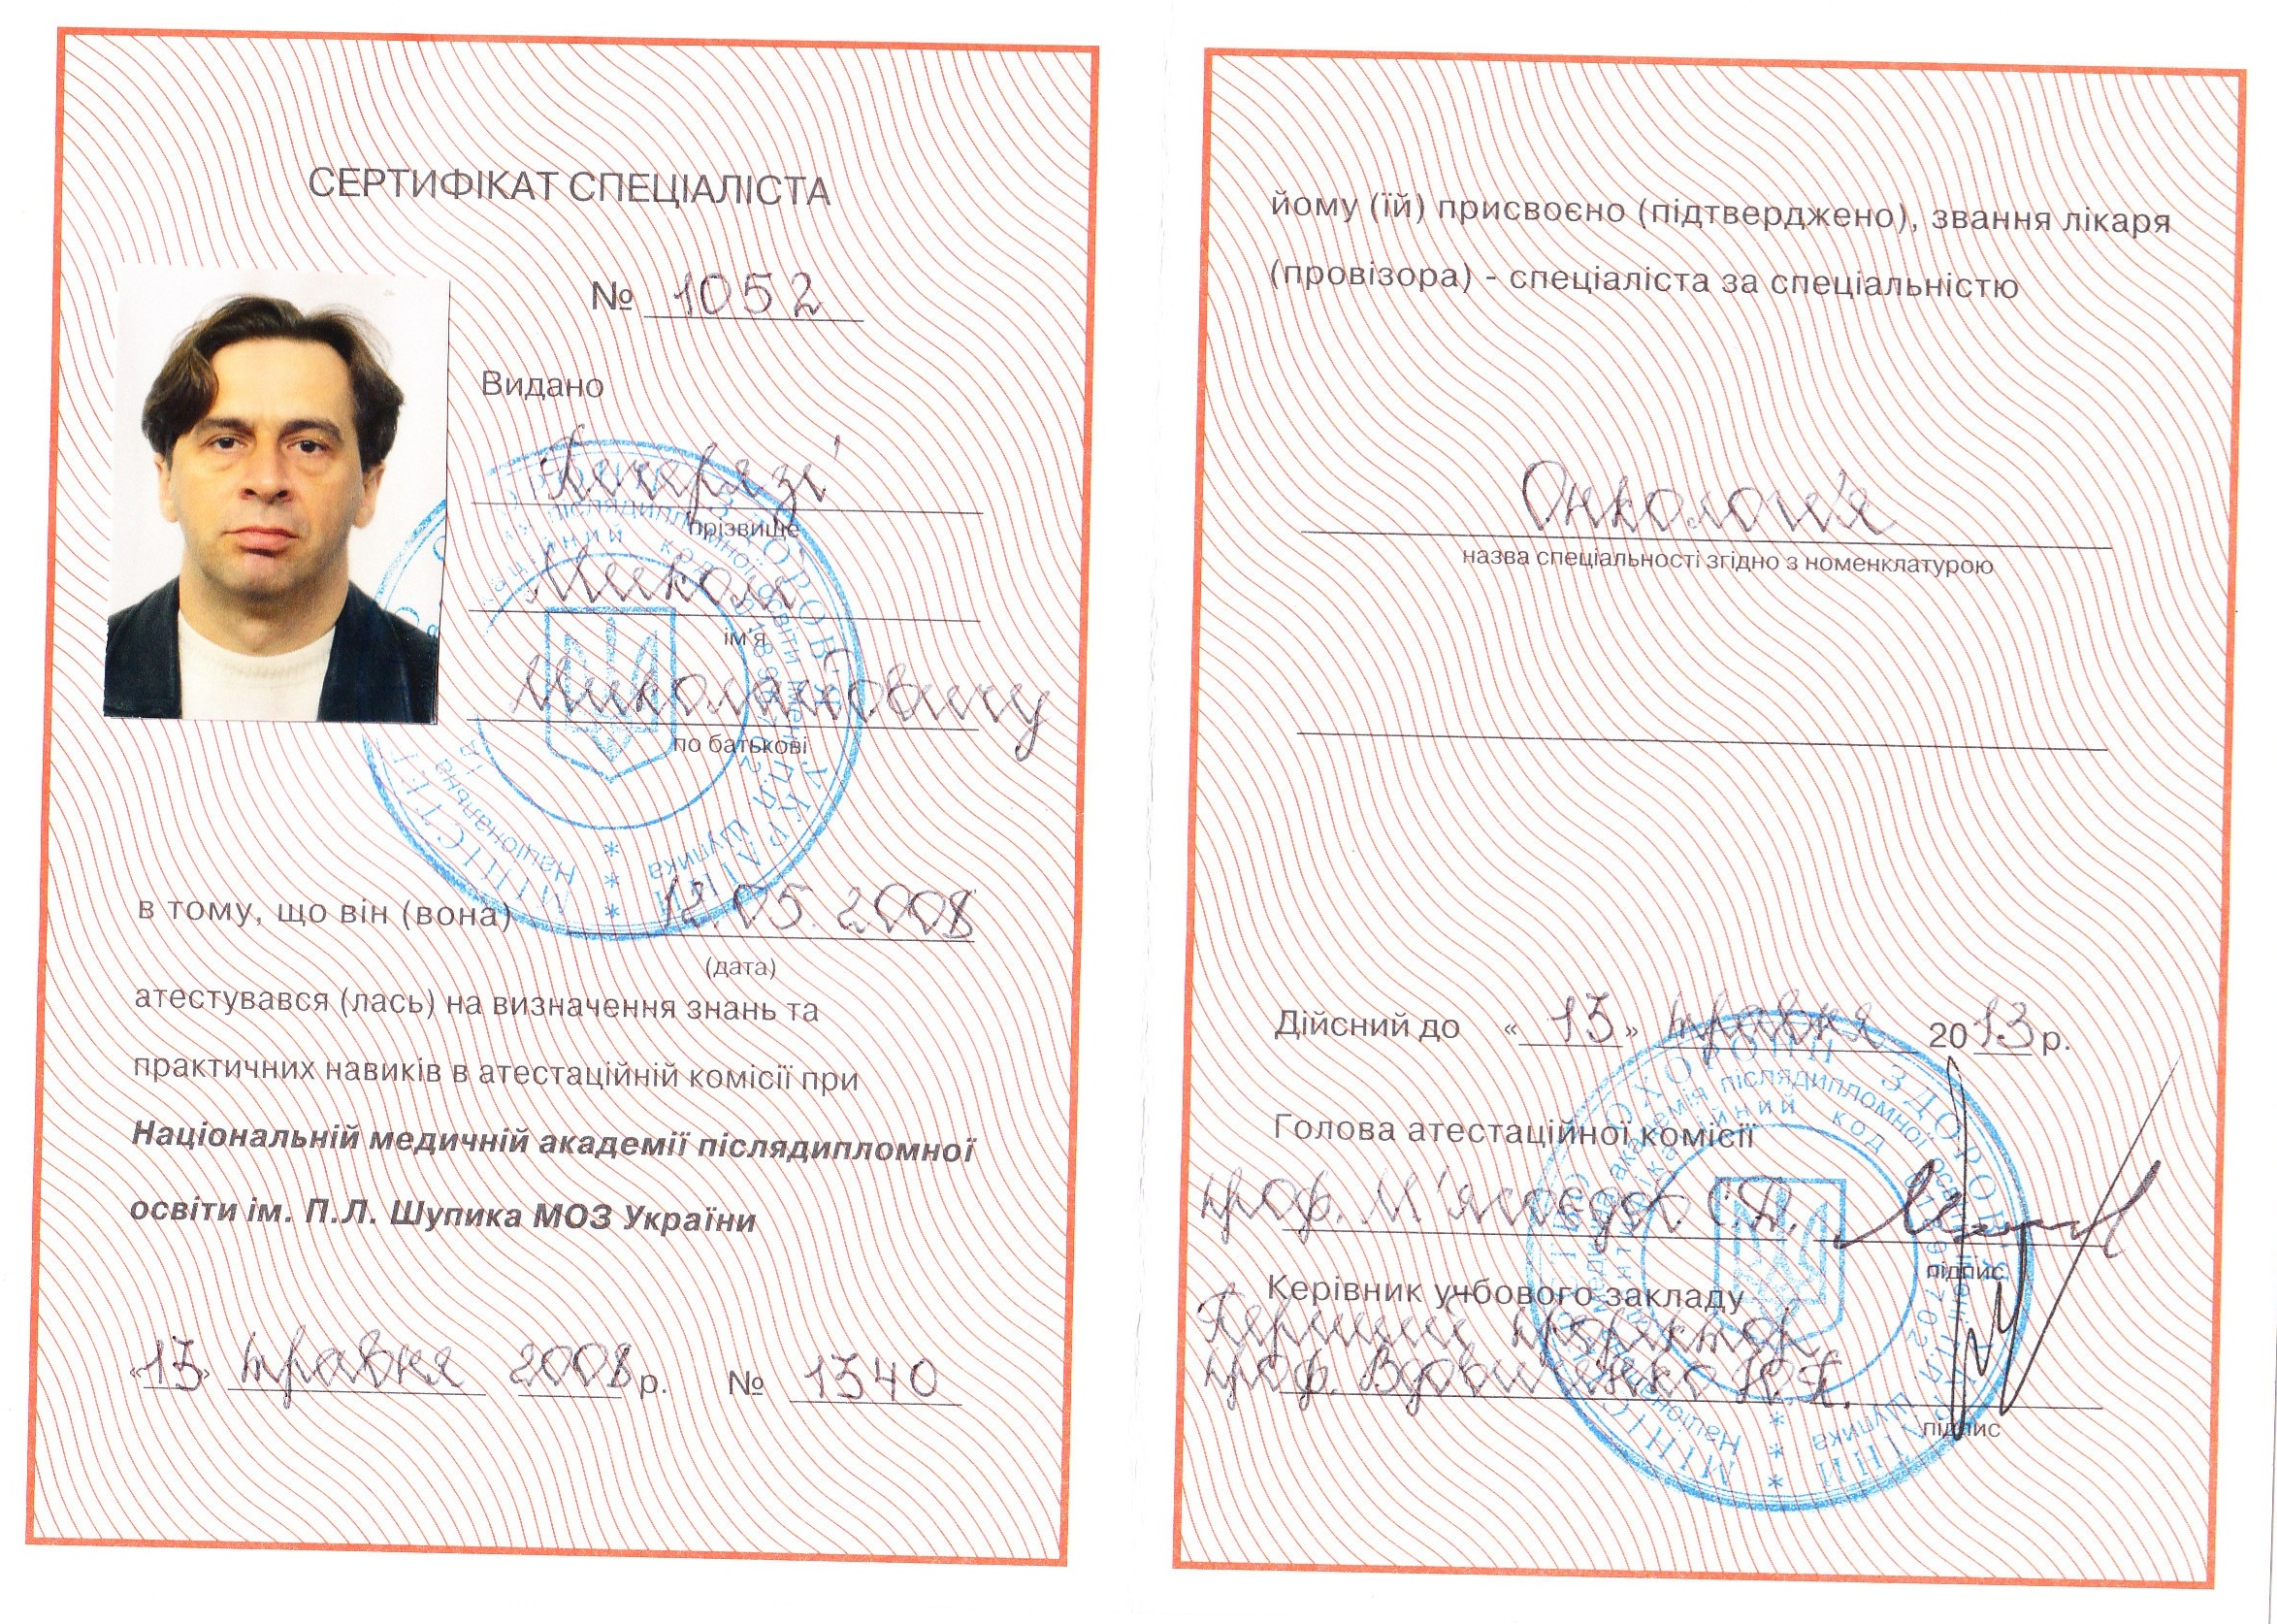 СЕРТИФІКАТ СПЕЦІАЛІСТА
№ 1052
Видано
прізвище
Миколі
ім'я
Миколайовичу
по батькові
в тому, що він (вона) 12.05.2008
(дата)
атестувався (лась) на визначення знань та
практичних навиків в атестаційній комісії при
Національній медичній академії післядипломної
освіти ім. П.Л. Шупика МОЗ України
«13» травня 2008 р. № 1340
йому (їй) присвоєно (підтверджено), звання лікаря
(провізора) - спеціаліста за спеціальністю
Онкологія
назва спеціальності згідно з номенклатурою
Дійсний до «13» травня 2013 р.
Голова атестаційної комісії
проф. М'ясоєдов С.Д.
підпис
Керівник учбового закладу
Перший проректор
проф. Вдовиченко Ю.П.
підпис